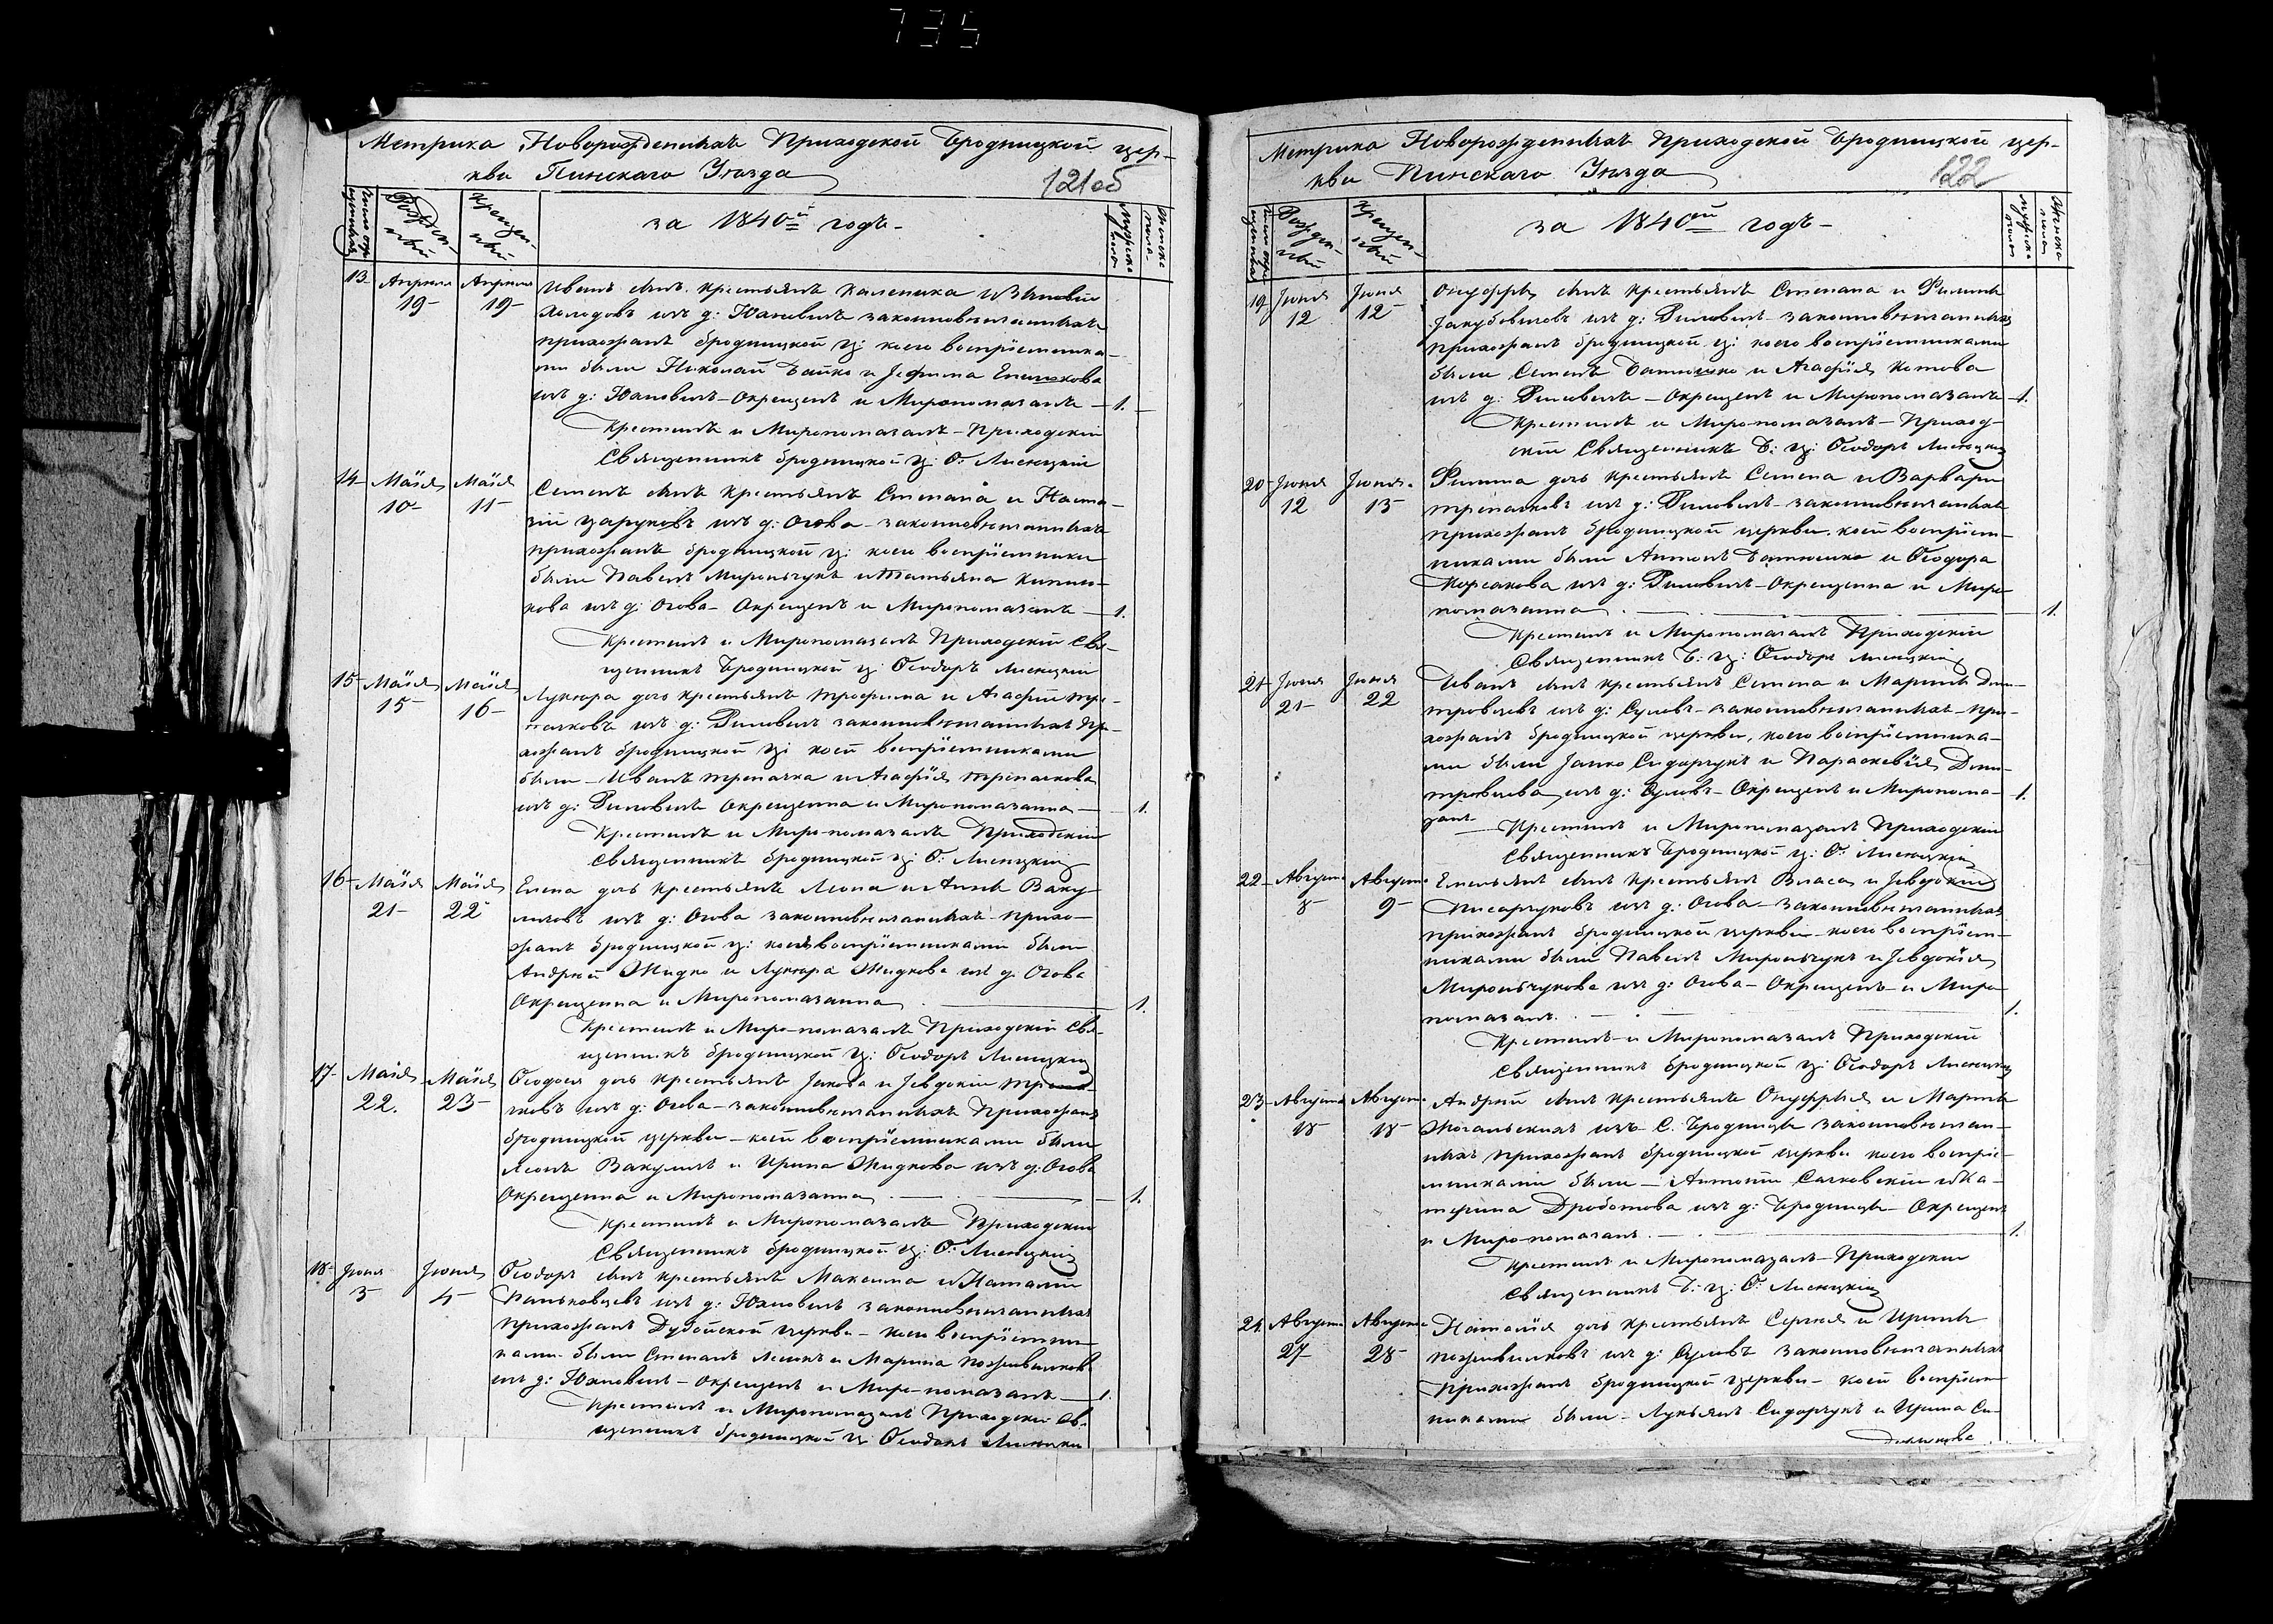 735
Метрика Новорожденныхъ Приходской Бродницкой цер-
кви Пинскаго Уезда
121об
Рожден-
ный
Крещен-
ный
за 1840й годъ -
Мужеска
пола
Женска
пола
13 Апреля 19 Апреля 19 Иванъ сынъ крестьянъ Каленика и
Холодовъ изъ д: Юхновичъ законновѣнчанныхъ
прихожанъ бродницкой ц: коего воспріемника-
ми были Николай Байко и Іефима
изъ д: Юхновичъ - Окрещенъ и Миропомазанъ - 1.
Крестилъ и Миропомазалъ - Приходскій
Священникъ бродницкой ц: Ѳ: Лисецкій
14 Маія 10 Маія 11 Семенъ сынъ крестьянъ Степана и Наста-
зій Царуковъ изъ д: Огова - законновѣнчанныхъ
прихожанъ бродницкой ц: коего воспріемники
были Павелъ Мироньчукъ и Татьяна
кова изъ д: Огова - Окрещенъ и Миропомазанъ - 1.
Крестилъ и Миропомазалъ Приходскій Свя-
щенникъ Бродницкой ц: Ѳеодоръ Лисецкій
15 Маія 15 Маія 16 Лукіора дочь крестьянъ Трофима и Агафіи Тре-
пачковъ изъ д: законновѣнчанныхъ При-
хожанъ бродницкой ц: коей воспріемниками
были - Иванъ Трепачка и Агафія Трепачкова
изъ д: Окрещенна и Миропомазанна - 1.
Крестилъ и Миропомазалъ Приходскій
Священникъ бродницкой ц: Ѳ: Лисецкій
16 Маія 21 Маія 22 Елена дочь крестьянъ Леона и Анны Ваку-
личовъ изъ д: Огова законновѣнчанныхъ - прихо-
жанъ бродницкой ц: коей воспріемниками были
Андрей Жидко и Лукіора Жидкова изъ д: Огова
Окрещенна и Миропомазанна - 1.
Крестилъ и Миропомазалъ Приходскій Свя-
щенникъ бродницкой ц: Ѳеодоръ Лисецкій
17 Маія 22. Маія 23 Ѳеодосія дочь крестьянъ Іакова и Іевдокіи
чковъ изъ д: Огова - законновѣнчанныхъ Прихожанъ
бродницкой церкви - коей воспріемниками были
Леонъ Вакуличъ и Ирина Жидкова изъ д: Огова
Окрещенна и Миропомазанна - 1.
Крестилъ и Миропомазалъ Приходскій
Священникъ бродницкой ц: Ѳ: Лисецкій
18 Іюня 3 Іюня 4 Ѳеодоръ сынъ крестьянъ Максима и Наталіи
Паньковцевъ изъ д: Юхновичъ законновѣнчанныхъ
прихожанъ Дубойской церкви - коего воспріемни-
ками были Степанъ и Марина
изъ д: Юхновичъ - Окрещенъ и Миропомазанъ - 1.
Крестилъ и Миропомазалъ Приходскій Свя-
щенникъ бродницкой ц: Ѳеодоръ Лисецкій
Метрика Новорожденныхъ Приходской Бродницкой цер-
кви Пинскаго Уезда
122
Рожден-
ный
Крещен-
ный
за 1840ый годъ -
Мужеска
пола
Женска
пола
19 Іюня 12 Іюня 12 Онуфрій сынъ крестьянъ Степана и
Якубовичовъ изъ д: законновѣнчанныхъ
прихожанъ бродницкой ц: коего воспріемниками
были Семенъ и Агафія Котова
изъ д: Окрещенъ и Миропомазанъ - 1.
Крестилъ и Миропомазалъ - Приход-
скій Священникъ Б: ц: Ѳеодоръ Лисецкій
20 Іюня 12 Іюня 13 дочь крестьянъ Семена и Варвары
Трепачковъ изъ д: законновѣнчанныхъ
прихожанъ бродницкой церкви. коей воспріем-
никами были Антонъ и Ѳеодора
Корсакова изъ д: Окрещенна и Миро-
помазанна - 1.
Крестилъ и Миропомазалъ Приходскій
Священникъ Б: ц: Ѳеодоръ Лисецкій
21 Іюня 21 Іюня 22 Иванъ сынъ крестьянъ Семена и Марины Дми-
тровцевъ изъ д: законновѣнчанныхъ - при-
хожанъ бродницкой церкви, коего воспріемника-
ми были Янко Сидорчукъ и Параскевія Дми-
тровцева изъ д: Окрещенъ и Миропома-
занъ - 1.
Крестилъ и Миропомазалъ Приходскій
Священникъ Бродницкой ц: Ѳ: Лисецкій
22 Августа 8 Августа 9 Емельянъ сынъ крестьянъ Власа и Іевдокіи
Писарчуковъ изъ д: Огова - законновѣнчанныхъ
прихожанъ бродницкой церкви - коего воспріем-
никами были Павелъ Мироньчукъ и Іевдокія
Мироньчукова изъ д: Огова - Окрещенъ и Миро-
помазанъ. - 1.
Крестилъ и Миропомазалъ Приходскій
Священникъ бродницкой ц: Ѳеодоръ Лисецкій
23 Августа 18 Августа 18 Андрей сынъ крестьянъ Онуфрія и Марины
изъ С. Бродницы законновѣнчан-
ныхъ прихожанъ бродницкой церкви коего воспріе-
мниками были - Антоній Сачковскій и Ка-
терина Дроботова изъ д: Бродницы - Окрещенъ
и Миропомазанъ. - 1.
Крестилъ и Миропомазалъ - Приходскій
Священникъ Б: ц: Ѳ: Лисецкій
24 Августа 27 Августа 28 Наталія дочь крестьянъ Сергія и Ирины
изъ д: законновѣнчанныхъ
Прихожанъ бродницкой церкви - коей воспріем-
никами были - Лукьянъ Сидорчукъ и Ирина Си-